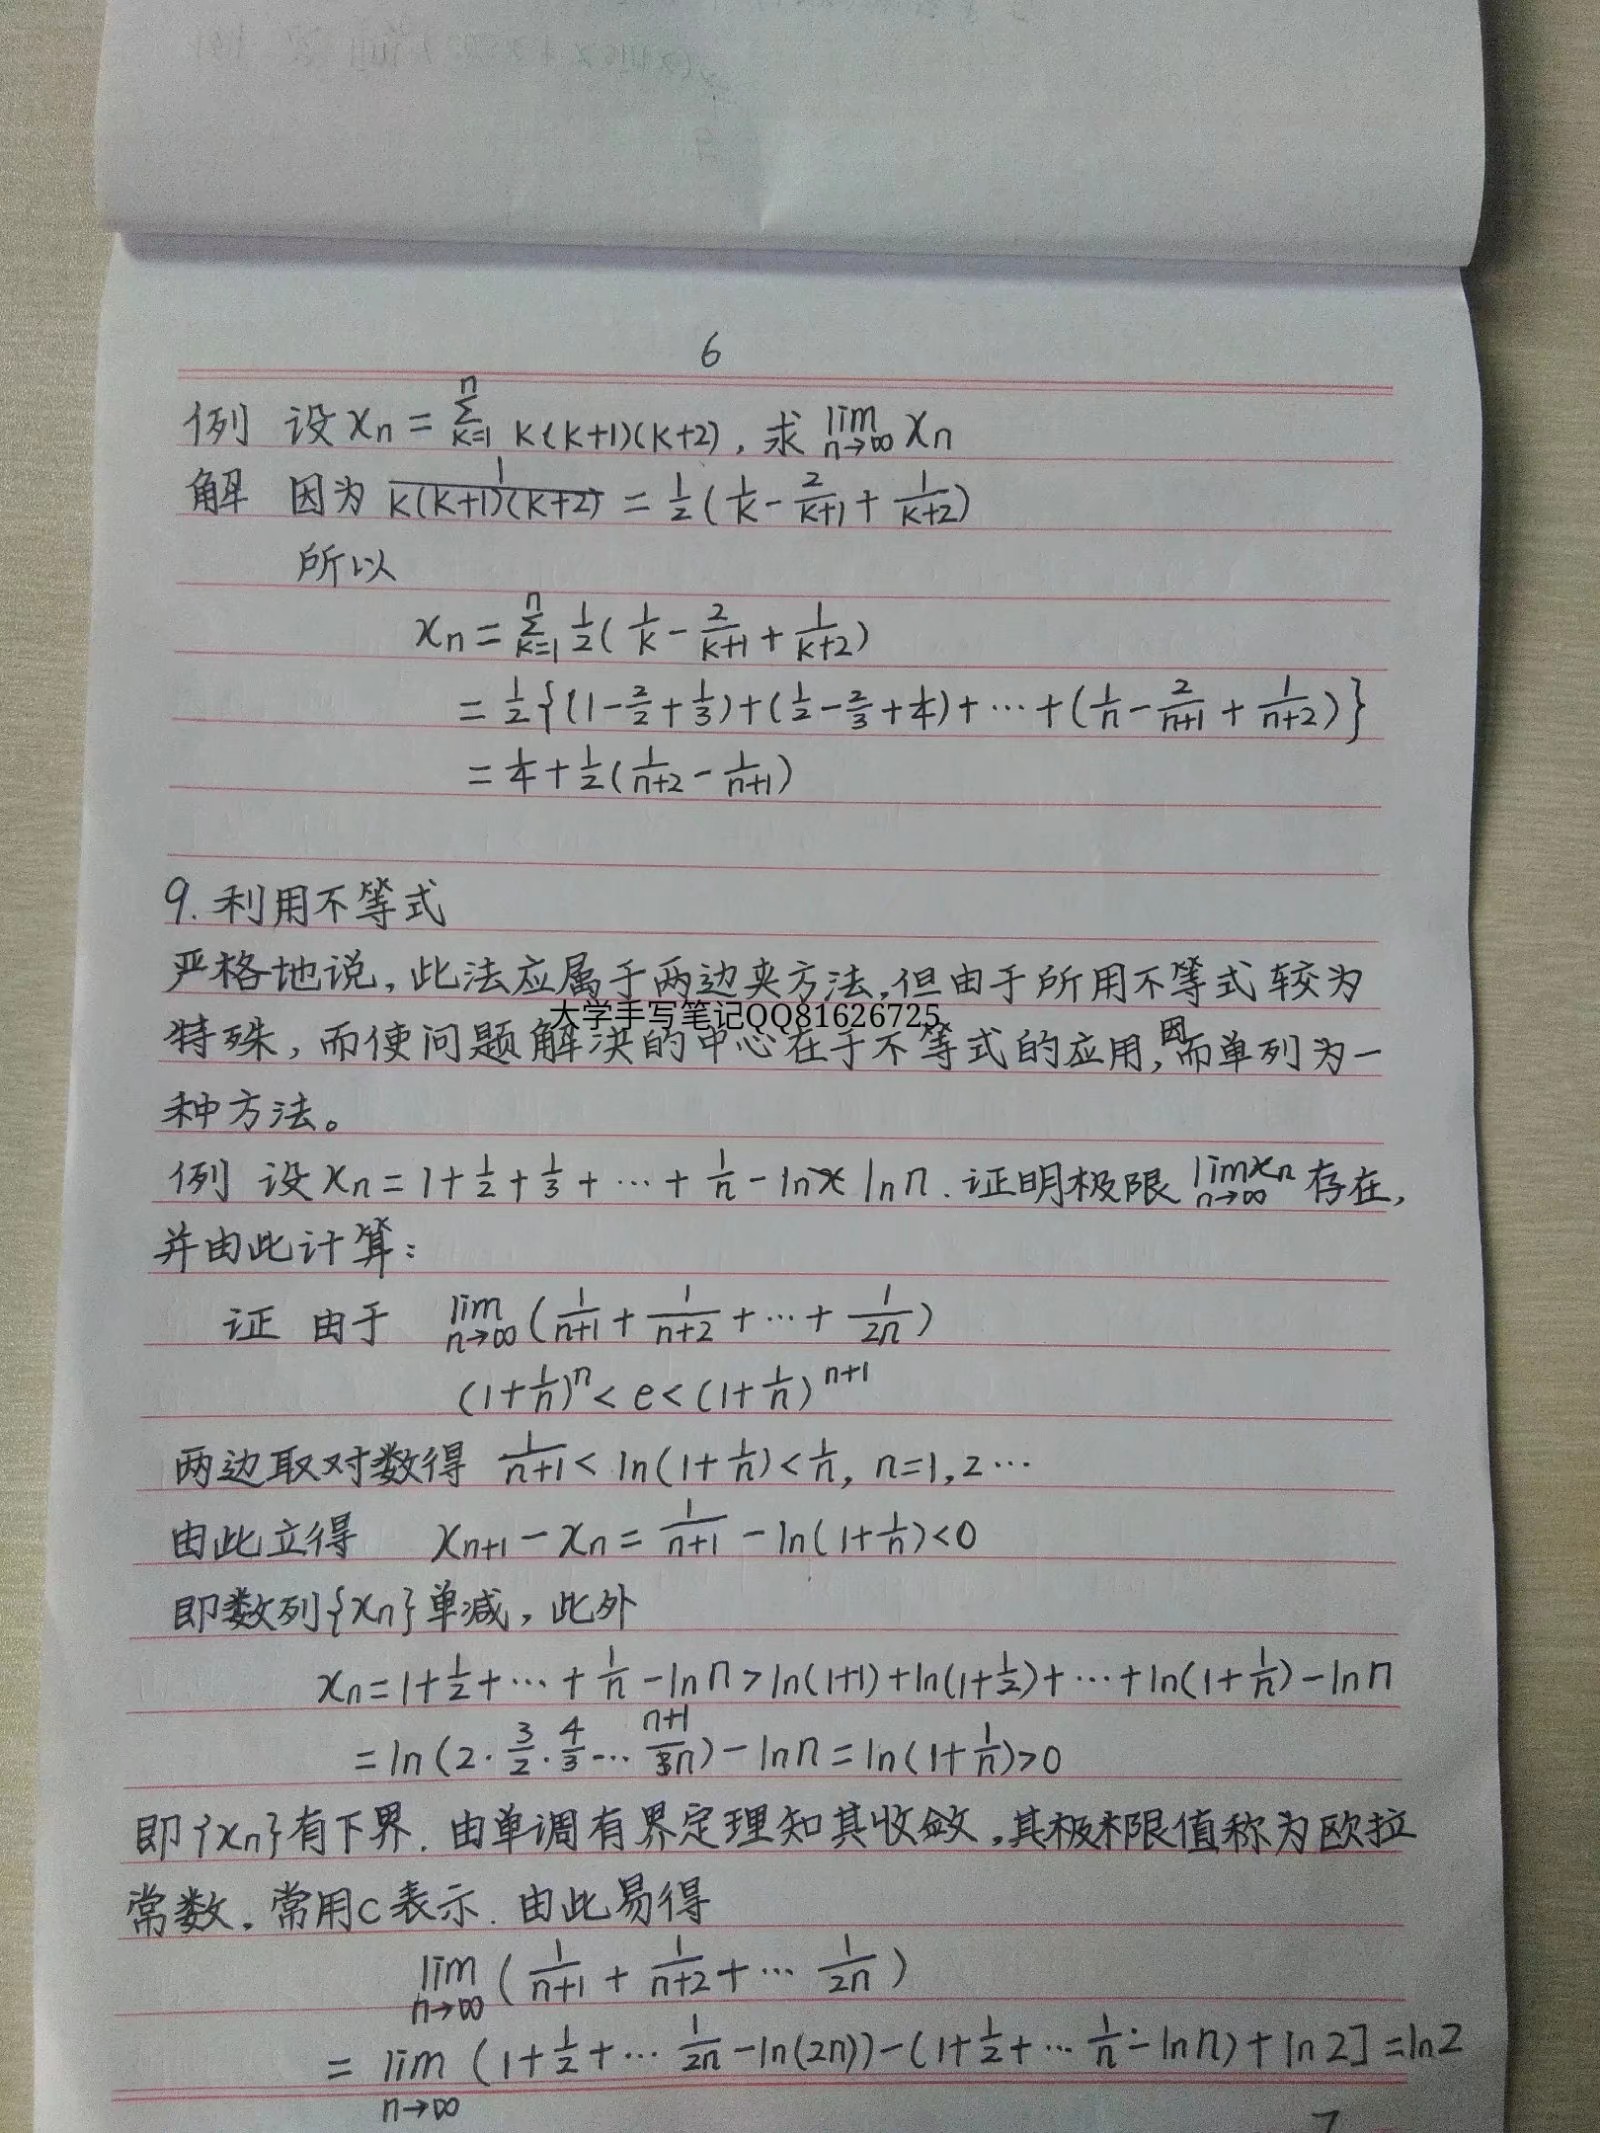 6
例 设 xₙ = ∑ₖ₌₁ⁿ k(k+1)(k+2), 求 lim_{n→∞} xₙ
解 因为 1/(k(k+1)(k+2)) = 1/2 (1/k - 2/(k+1) + 1/(k+2))
所以
xₙ = ∑ₖ₌₁ⁿ 1/2 (1/k - 2/(k+1) + 1/(k+2))
= 1/2 {(1 - 2/2 + 1/3) + (1/2 - 2/3 + 1/4) + ⋯ + (1/n - 2/(n+1) + 1/(n+2))}
= 1/4 + 1/2 (1/(n+2) - 1/(n+1))
9. 利用不等式
严格地说, 此法应属于两边夹方法, 但由于所用不等式较为
大学手写笔记QQ81626725
特殊, 而使问题解决的中心在于不等式的应用, 因而单列为一
种方法。
例 设 xₙ = 1 + 1/2 + 1/3 + ⋯ + 1/n - ln n. 证明极限 lim_{n→∞} xₙ 存在,
并由此计算:
证 由于 lim_{n→∞} (1/(n+1) + 1/(n+2) + ⋯ + 1/(2n))
(1 + 1/n)ⁿ < e < (1 + 1/n)ⁿ⁺¹
两边取对数得 1/(n+1) < ln(1 + 1/n) < 1/n, n=1, 2 ⋯
由此立得 xₙ₊₁ - xₙ = 1/(n+1) - ln(1 + 1/n) < 0
即数列{xₙ}单减, 此外
xₙ = 1 + 1/2 + ⋯ + 1/n - ln n > ln(1+1) + ln(1 + 1/2) + ⋯ + ln(1 + 1/n) - ln n
= ln(2 · 3/2 · 4/3 ⋯ (n+1)/n) - ln n = ln(1 + 1/n) > 0
即{xₙ}有下界. 由单调有界定理知其收敛, 其极限值称为欧拉
常数, 常用C表示. 由此易得
lim_{n→∞} (1/(n+1) + 1/(n+2) + ⋯ 1/(2n))
= lim_{n→∞} (1 + 1/2 + ⋯ 1/(2n) - ln(2n)) - (1 + 1/2 + ⋯ 1/n - ln n) + ln 2] = ln 2
7